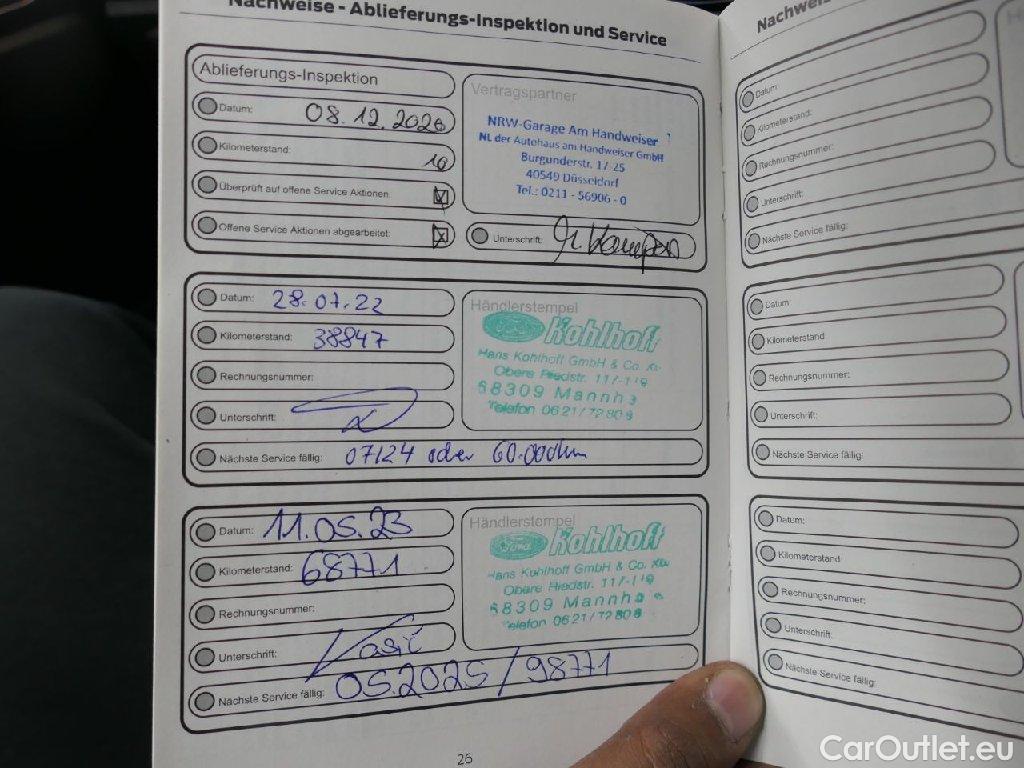 Nachweise - Ablieferungs-Inspektion und Service
Ablieferungs-Inspektion
Datum: 08.12.2020
Kilometerstand: 10
Überprüft auf offene Service Aktionen: ☒
Offene Service Aktionen abgearbeitet: ☒
Vertragspartner
NRW-Garage Am Handweiser
NL der Autohaus am Handweiser GmbH
Burgunderstr. 17-25
40549 Düsseldorf
Tel.: 0211 - 56906 - 0
Unterschrift:
Datum: 28.07.22
Kilometerstand: 38847
Rechnungsnummer:
Unterschrift:
Nächste Service fällig: 07/24 oder 60.000km
Händlerstempel
Ford Kohlhoff
Hans Kohlhoff GmbH & Co. KG
Obere Riedstr. 117-119
68309 Mannh
Telefon 0621/72808
Datum: 11.05.23
Kilometerstand: 68771
Rechnungsnummer:
Unterschrift:
Nächste Service fällig: 05.2025/98771
Händlerstempel
Ford Kohlhoff
Hans Kohlhoff GmbH & Co.
Obere Riedstr. 117-119
68309 Mannh
Telefon 0621/72808
26
Nachweis
Datum:
Kilometerstand:
Rechnungsnummer:
Unterschrift:
Nächste Service fällig:
Datum:
Kilometerstand:
Rechnungsnummer:
Unterschrift:
Nächste Service fällig:
Datum:
Kilometerstand:
Rechnungsnummer:
Unterschrift:
Nächste Service fällig:
CarOutlet.eu